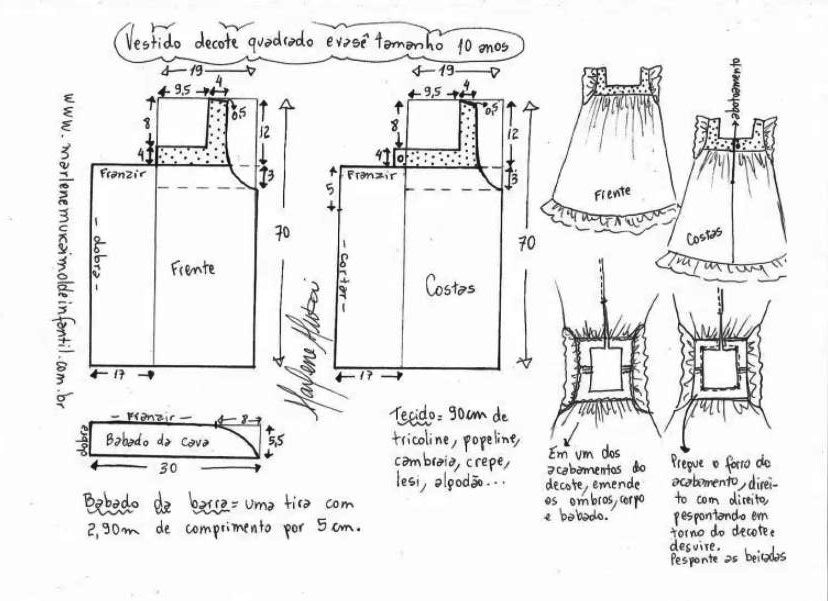 Vestido decote quadrado evasê tamanho 10 anos
www.marlenemukaimoldeinfantil.com.br
19
9,5
4
0,5
8
12
4
3
Franzir
- dobra -
Frente
70
17
19
9,5
4
0,5
8
12
4
3
Franzir
5
- cortar -
Costas
70
17
Marlene Mukai
Frente
abotoamento
Costas
- Franzir -
8
dobra
Babado da cava
5,5
30
Babado da barra = uma tira com
2,90m de comprimento por 5 cm.
Tecido = 90cm de
tricoline, popeline,
cambraia, crepe,
lesi, algodão...
Em um dos
acabamentos do
decote, emende
os ombros, corpo
e babado.
Pregue o forro do
acabamento, direi-
to com direito,
pespontando em
torno do decote e
desvire.
Pesponte as beiradas